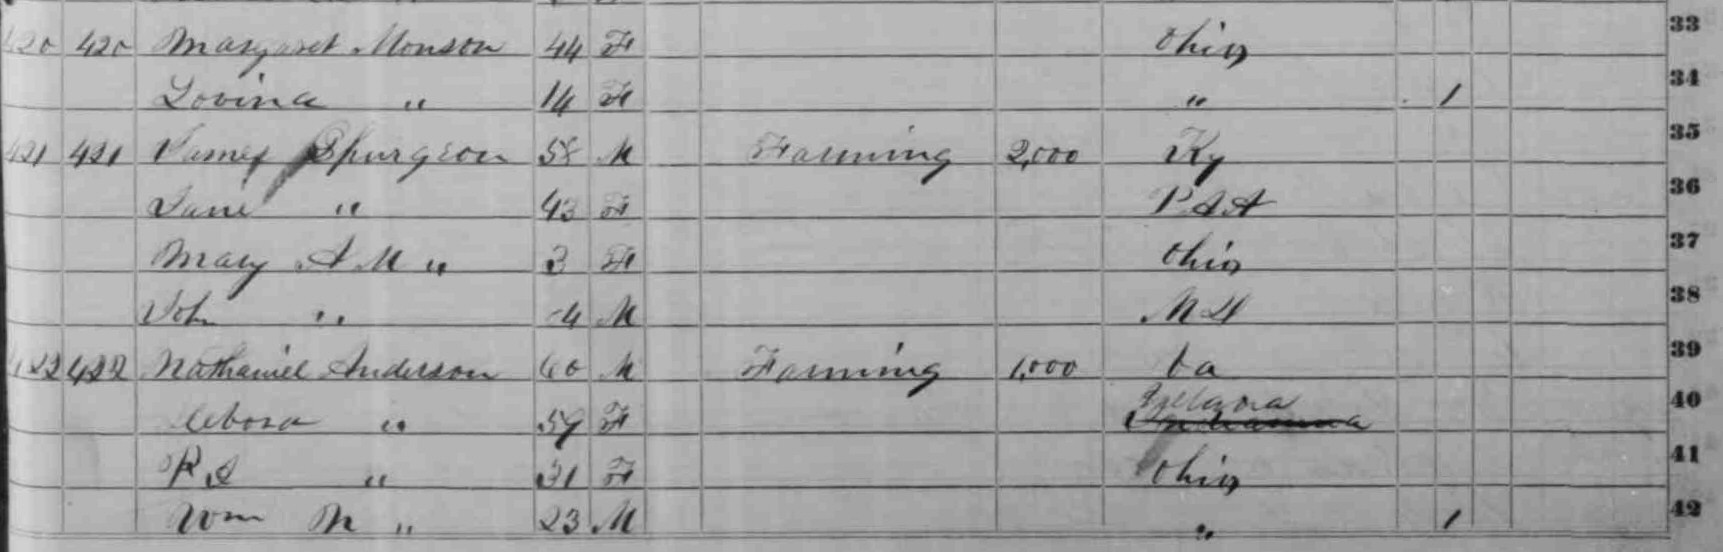 33
420 420 Margaret Monson 44 F Ohio
34
Lovina " 14 F " 1
35
421 421 James Spurgeon 58 M Farming 2,000 Ky
36
Jane " 43 F P A A
37
Mary A M " 3 F Ohio
38
Joh " 4 M M D
39
422 422 Nathaniel Anderson 60 M Farming 1,000 Va
40
" 59 F
41
R S " 31 F Ohio
42
Wm M " 23 M " 1